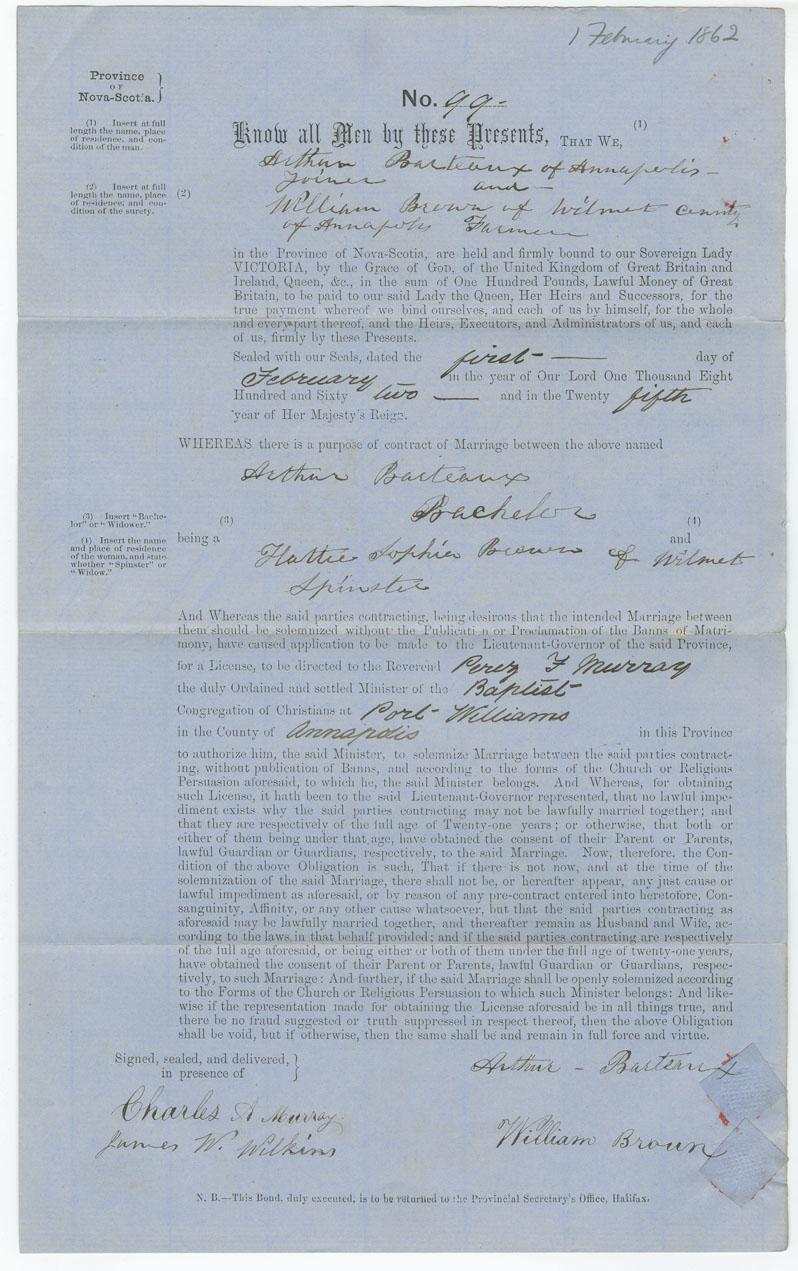 1 February 1862
Province
OF
Nova-Scotia.
No. 99-
(1) Insert at full
length the name, place
of residence, and con-
dition of the man.
Know all Men by these Presents, THAT WE, (1)
Arthur Barteaux of Annapolis -
Joiner and -
(2) Insert at full
length the name, place
of residence, and con-
dition of the surety.
(2)
William Brown of Wilmot County
of Annapolis Farmer
in the Province of Nova-Scotia, are held and firmly bound to our Sovereign Lady
VICTORIA, by the Grace of GOD, of the United Kingdom of Great Britain and
Ireland, Queen, &c., in the sum of One Hundred Pounds, Lawful Money of Great
Britain, to be paid to our said Lady the Queen, Her Heirs and Successors, for the
true payment whereof we bind ourselves, and each of us by himself, for the whole
and every part thereof, and the Heirs, Executors, and Administrators of us, and each
of us, firmly by these Presents.
Sealed with our Seals, dated the first - day of
February in the year of Our Lord One Thousand Eight
Hundred and Sixty two - and in the Twenty fifth
year of Her Majesty's Reign.
WHEREAS there is a purpose of contract of Marriage between the above named
Arthur Barteaux
(3) Insert "Bache-
lor" or "Widower."
(3) Bachelor (4)
(4) Insert the name
and place of residence
of the woman, and state
whether "Spinster" or
"Widow."
being a and
Hattie Sophia Brown of Wilmot
Spinster
And Whereas the said parties contracting, being desirous that the intended Marriage between
them should be solemnized without the Publication or Proclamation of the Banns of Matri-
mony, have caused application to be made to the Lieutenant-Governor of the said Province,
for a License, to be directed to the Reverend Perez F Murray
the duly Ordained and settled Minister of the Baptist
Congregation of Christians at Port Williams
in the County of Annapolis in this Province
to authorize him, the said Minister, to solemnize Marriage between the said parties contract-
ing, without publication of Banns, and according to the forms of the Church or Religious
Persuasion aforesaid, to which he, the said Minister belongs. And Whereas, for obtaining
such License, it hath been to the said Lieutenant-Governor represented, that no lawful impe-
diment exists why the said parties contracting may not be lawfully married together; and
that they are respectively of the full age of Twenty-one years; or otherwise, that both or
either of them being under that age, have obtained the consent of their Parent or Parents,
lawful Guardian or Guardians, respectively, to the said Marriage. Now, therefore, the Con-
dition of the above Obligation is such, That if there is not now, and at the time of the
solemnization of the said Marriage, there shall not be, or hereafter appear, any just cause or
lawful impediment as aforesaid, or by reason of any pre-contract entered into heretofore, Con-
sanguinity, Affinity, or any other cause whatsoever, but that the said parties contracting as
aforesaid may be lawfully married together, and thereafter remain as Husband and Wife, ac-
cording to the laws in that behalf provided; and if the said parties contracting are respectively
of the full age aforesaid, or being either or both of them under the full age of twenty-one years,
have obtained the consent of their Parent or Parents, lawful Guardian or Guardians, respec-
tively, to such Marriage: And further, if the said Marriage shall be openly solemnized according
to the Forms of the Church or Religious Persuasion to which such Minister belongs: And like-
wise if the representation made for obtaining the License aforesaid be in all things true, and
there be no fraud suggested or truth suppressed in respect thereof, then the above Obligation
shall be void, but if otherwise, then the same shall be and remain in full force and virtue.
Signed, sealed, and delivered,
in presence of
Arthur - Barteaux
Charles A Murray
James W. Wilkins
William Brown
N. B.—This Bond, duly executed, is to be returned to the Provincial Secretary's Office, Halifax.